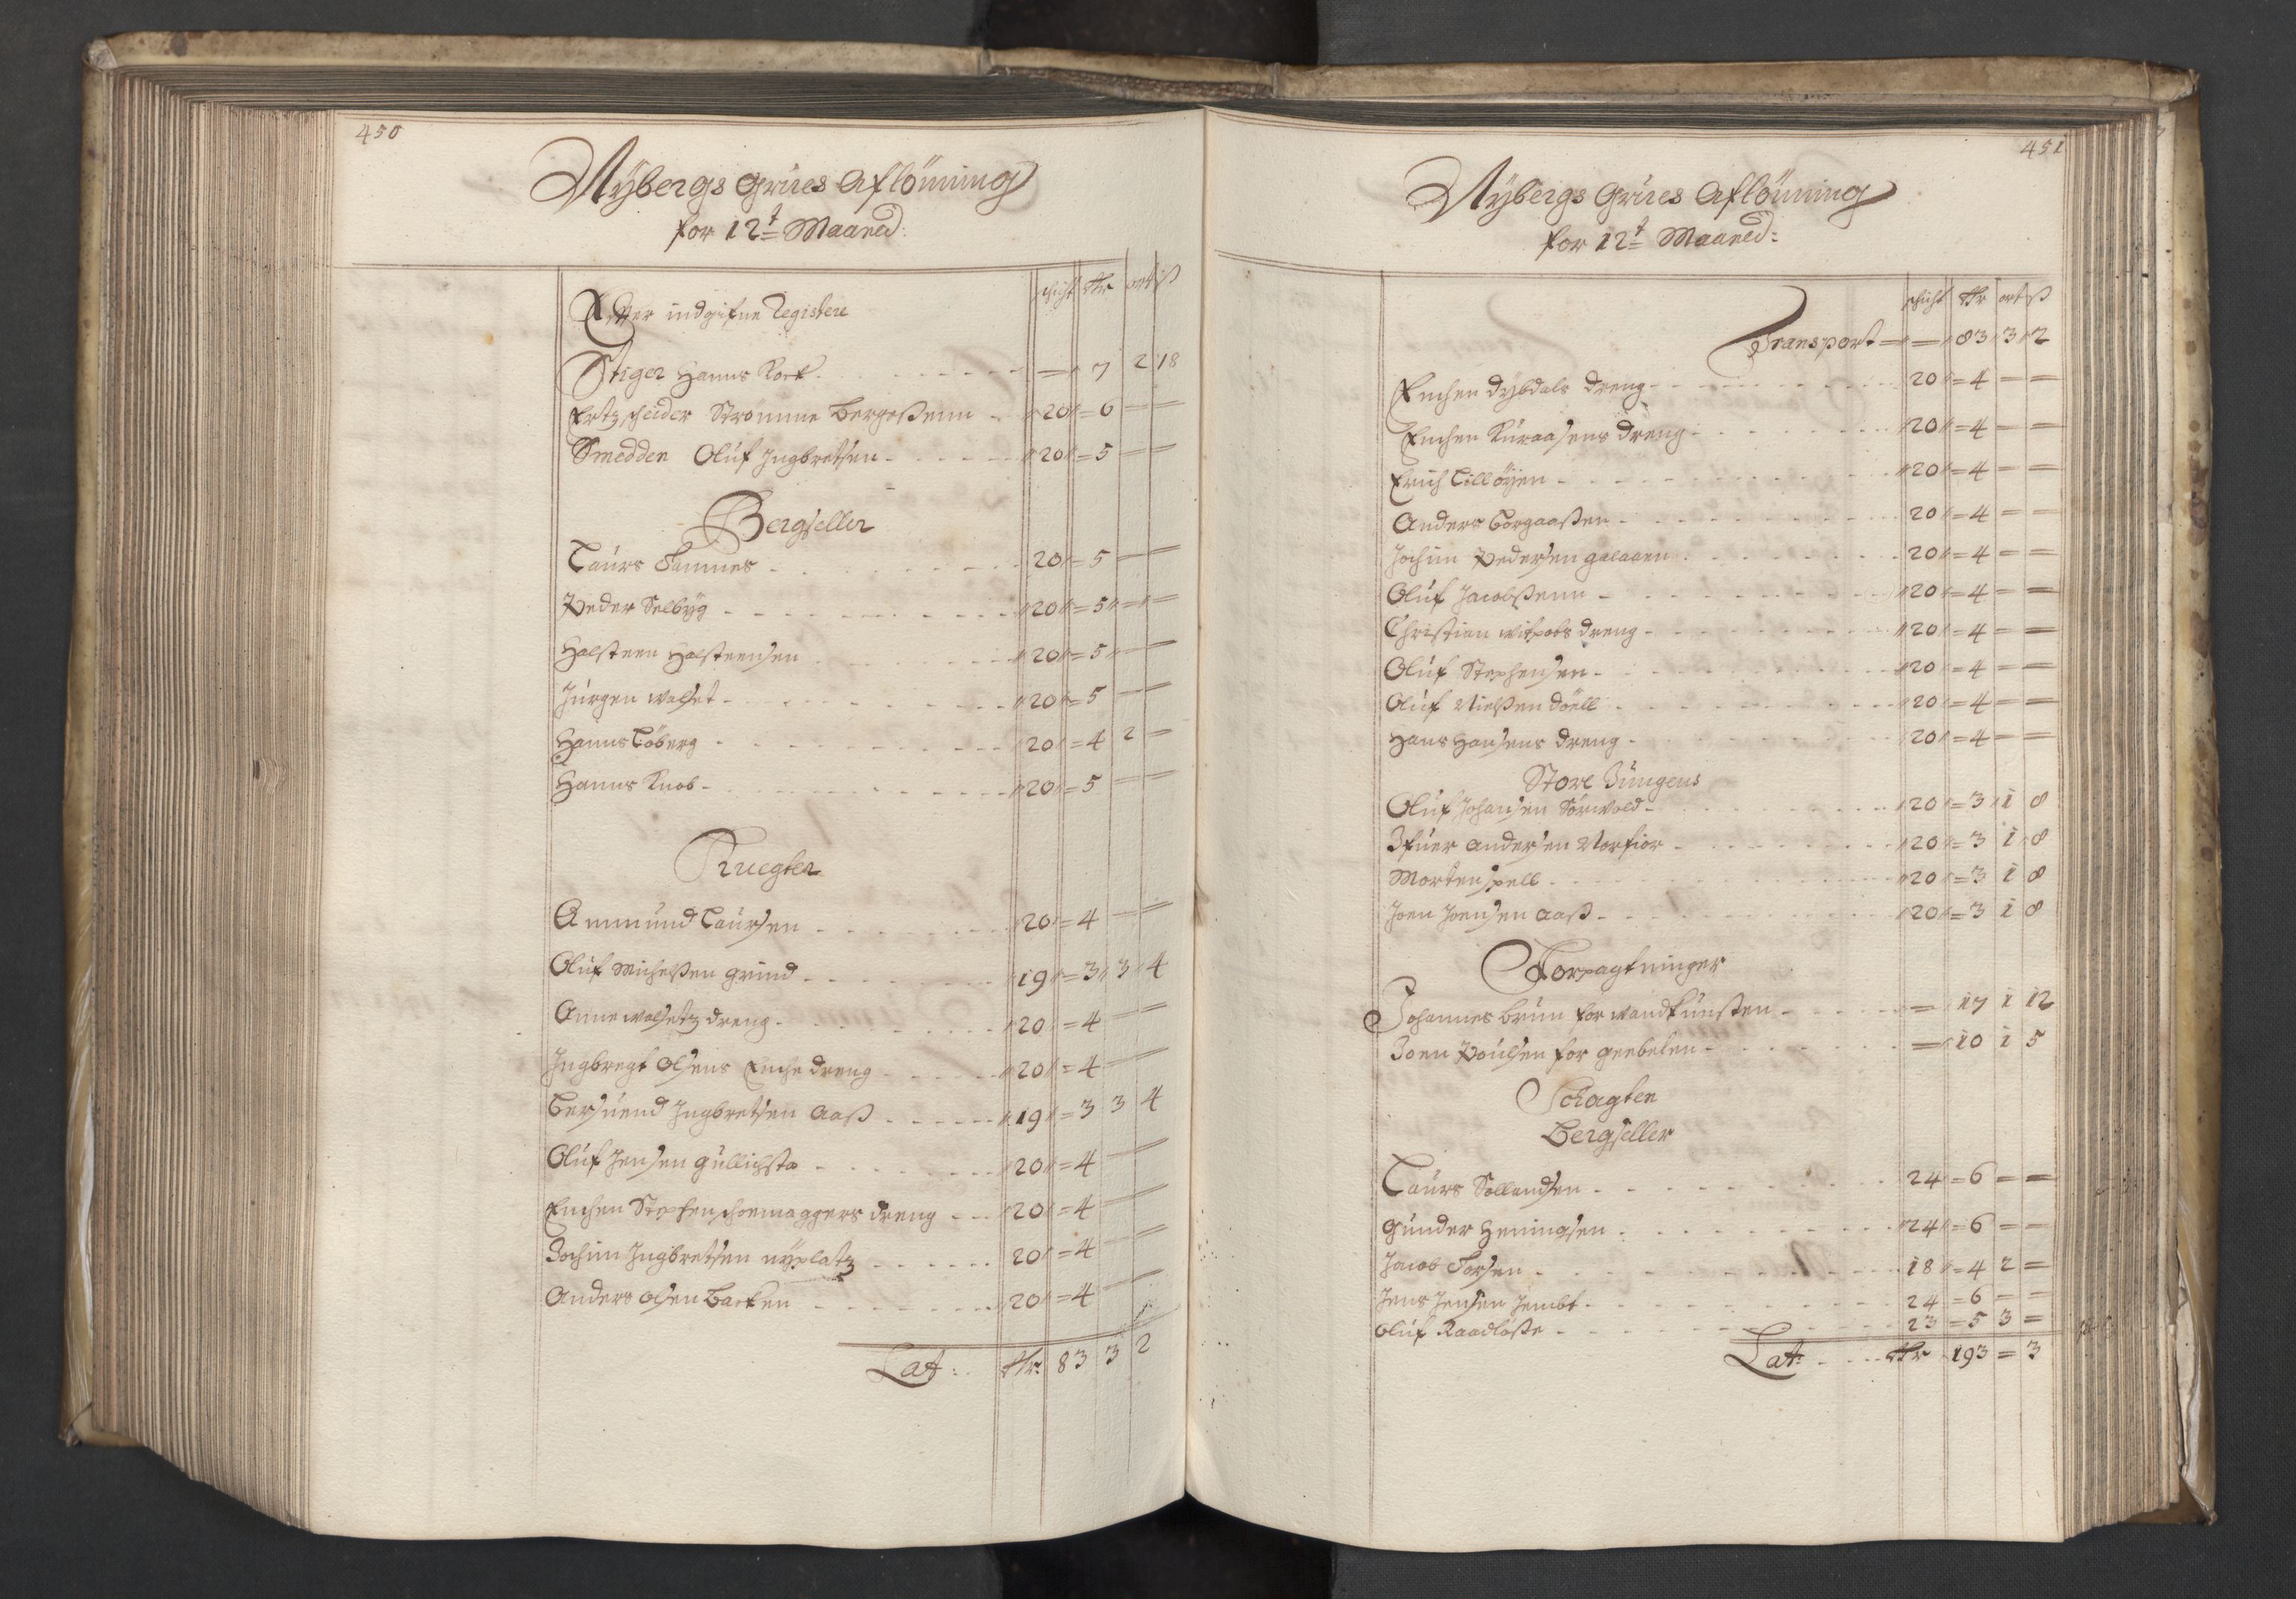 450
Nÿbergs Grues Aflönning
for 12t Maaned:
schicht Rr ort ß
Efter indgifne Registere
Stiger Hanns Kock - = 7 2 18
Ertzscheider Stromme Bergeßenn - 20 = 6 — —
Smedden Oluf Ingbretsen - 20 = 5 — —
Bergseller
Laurs Sammes - 20 = 5 — —
Peder Selbÿg - 20 = 5 — —
Halsteen Halsteensen - 20 = 5 — —
Jürgen Walset - 20 = 5 — —
Hanns Löberg - 20 = 4 2 —
Hanns Knob - 20 = 5 — —
Knegter
Ammund Laursen - 20 = 4 — —
Oluf Michelßen Grind - 19 = 3 3 4
Anne Walsetz dreng - 20 = 4 — —
Ingbregt Olsens Enche dreng - 20 = 4 — —
Bersuend Ingbretsen Aaß - 19 = 3 3 4
Oluf Jensen Gullichsta - 20 = 4 — —
Enchen Stephen schoemaggers dreng - 20 = 4 — —
Jochim Ingbretsen nÿplatz - 20 = 4 — —
Anders Olsen Backen - 20 = 4 — —
Lat: Rr: 83 3 2
451
Nÿbergs Grues Aflönning
for 12t Maaned:
schicht Rr ort ß
Transport = = 83 3 2
Enchen Dÿbdals dreng - 20 = 4 — =
Enchen Kuraasens dreng - 20 = 4 — =
Erich Lilløÿen - 20 = 4 — =
Anders Borgaaßen - 20 = 4 — =
Jochim Pedersen Galaaen - 20 = 4 — =
Oluf Jacobßenn - 20 = 4 — =
Christian Witpobs dreng - 20 = 4 — =
Oluf Stephensen - 20 = 4 — =
Oluf Nielßen Döell - 20 = 4 — =
Hans Hansens dreng - 20 = 4 — =
Store Jungens
Oluf Johansen Sörwold - 20 = 3 1 8
Ifuer Andersen Norfior - 20 = 3 1 8
Morten Spell - 20 = 3 1 8
Joen Joensen Aaß - 20 = 3 1 8
Forpagtninger
Johannes Brun for Wandkunsten - = 17 1 12
Joen Poulsen for Geebelen - = 10 1 5
Schagten
Bergseller
Laurs Sollandsen - 24 = 6 — =
Gunder Heningsen - 24 = 6 — =
Jacob Torsen - 18 = 4 2 =
Jens Jensen Jembt - 24 = 6 — =
Oluf Raadlöße - 23 = 5 3 =
Lat: Rr 193 = 3